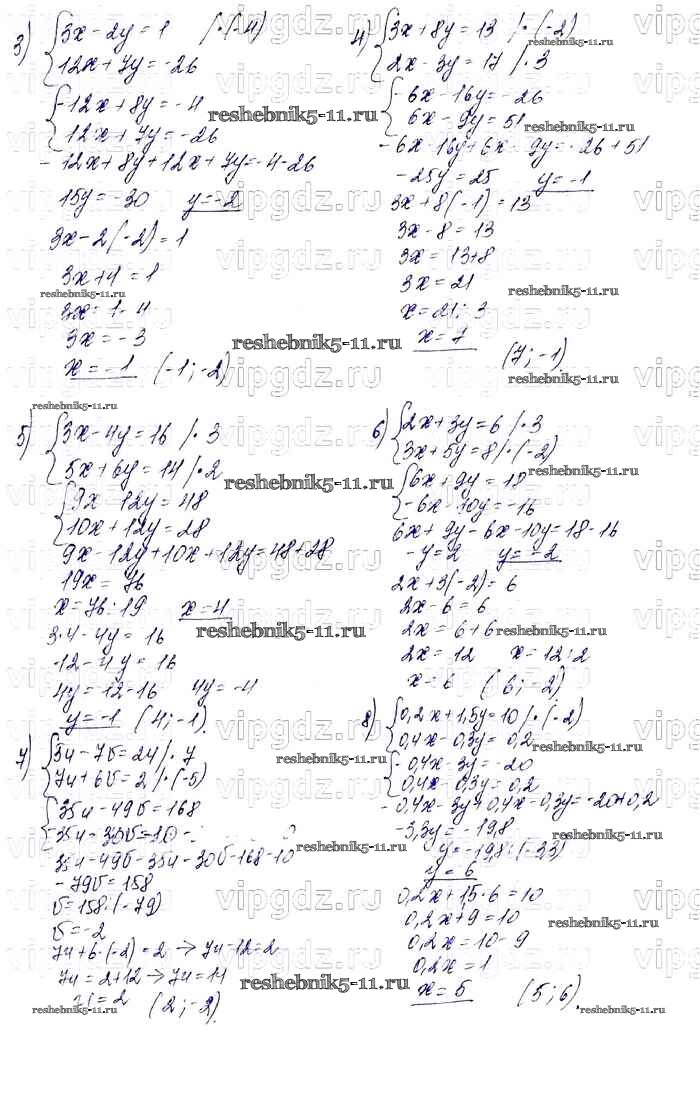 3) {3x-2y=1 |·(-4)
{12x+7y=-26
{-12x+8y=-4
{12x+7y=-26
-12x+8y+12x+7y=-4-26
15y=-30 y=-2
3x-2(-2)=1
3x+4=1
3x=1-4
3x=-3
x=-1 (-1;-2)
4) {3x+8y=13 |·(-2)
{2x-3y=17 |·3
{-6x-16y=-26
{6x-9y=51
-6x-16y+6x-9y=-26+51
-25y=25 y=-1
3x+8(-1)=13
3x-8=13
3x=13+8
3x=21
x=21:3
x=7
(7;-1)
5) {3x-4y=16 |·3
{5x+6y=14 |·2
{9x-12y=48
{10x+12y=28
9x-12y+10x+12y=48+28
19x=76
x=76:19 x=4
3·4-4y=16
12-4y=16
4y=12-16 4y=-4
y=-1 (4;-1)
6) {2x+3y=6 |·3
{3x+5y=8 |·(-2)
{6x+9y=18
{-6x-10y=-16
6x+9y-6x-10y=18-16
-y=2 y=-2
2x+3(-2)=6
2x-6=6
2x=6+6
2x=12 x=12:2
x=6 (6;-2)
7) {5u-7v=24 |·7
{7u+6v=2 |·(-5)
{35u-49v=168
{-35u-30v=-10
35u-49v-35u-30v=168-10
-79v=158
v=158:(-79)
v=-2
7u+6·(-2)=2 → 7u-12=2
7u=2+12 → 7u=14
u=2 (2;-2)
8) {0,2x+1,5y=10 |·(-2)
{0,4x-0,3y=0,2
{-0,4x-3y=-20
{0,4x-0,3y=0,2
-0,4x-3y+0,4x-0,3y=-20+0,2
-3,3y=-19,8
y=-19,8:(-3,3)
y=6
0,2x+1,5·6=10
0,2x+9=10
0,2x=10-9
0,2x=1
x=5 (5;6)
vipgdz.ru
reshebnik5-11.ru